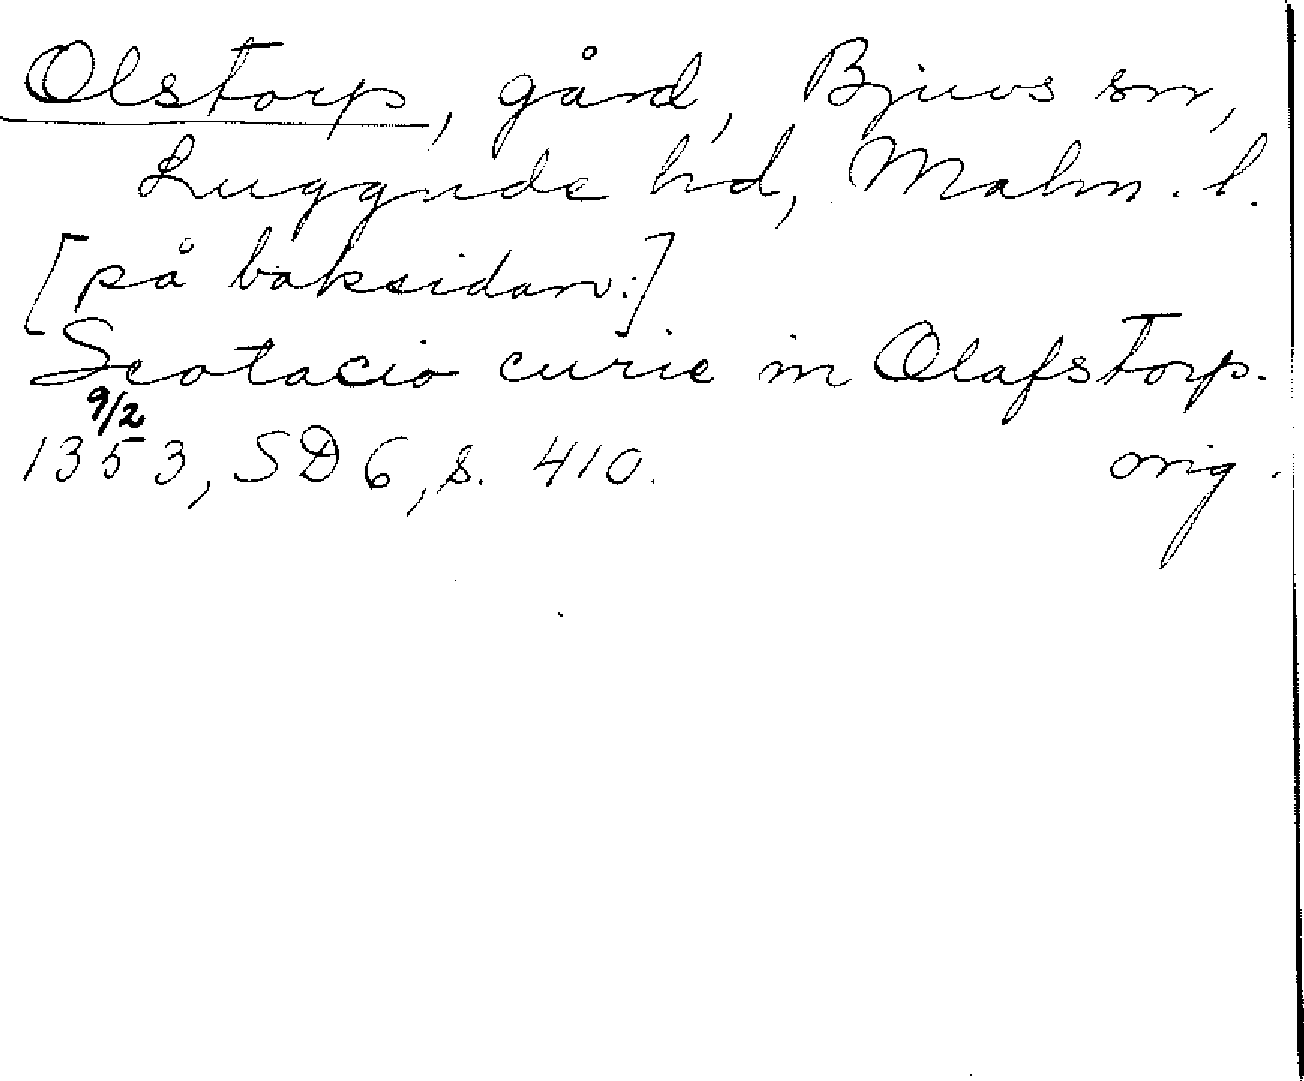 Olstorp, gård, Bjuvs sn,
Luggude hd, Malm. l.
[på baksidan:]
Scotacio curie in Olafstorp.
9/2
1353, SD 6, s. 410. orig.